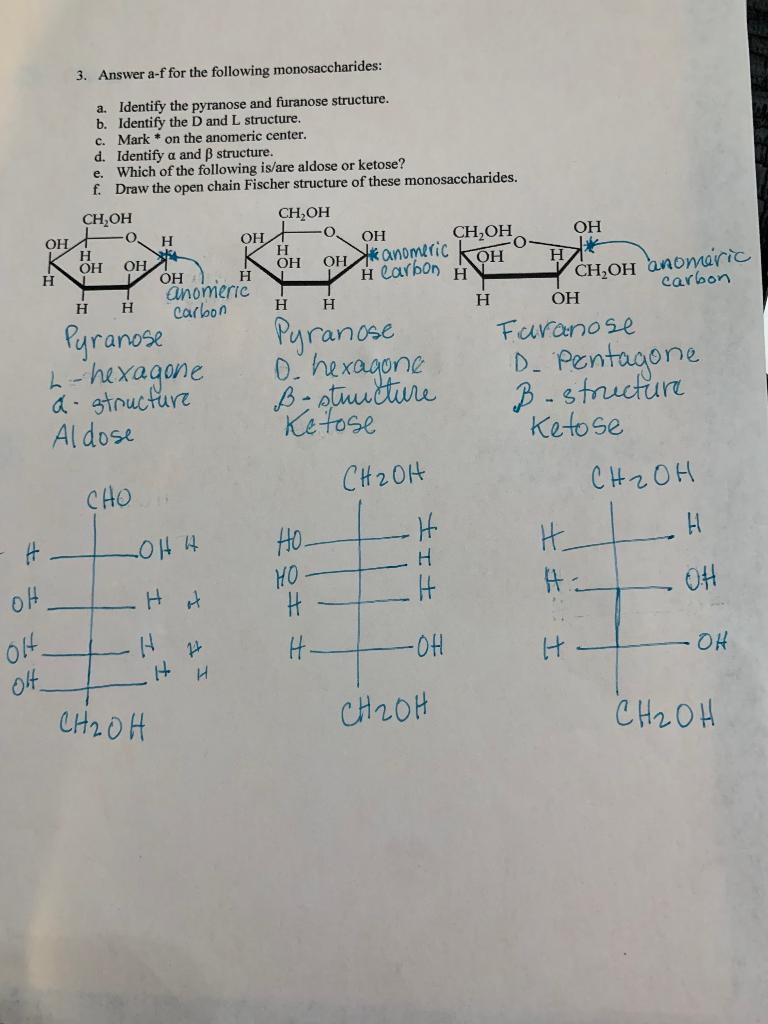 3. Answer a-f for the following monosaccharides:
a. Identify the pyranose and furanose structure.
b. Identify the D and L structure.
c. Mark * on the anomeric center.
d. Identify α and β structure.
e. Which of the following is/are aldose or ketose?
f. Draw the open chain Fischer structure of these monosaccharides.
CH₂OH CH₂OH
OH O H OH O OH CH₂OH O OH
H H * anomeric OH H *
OH OH OH OH H carbon H CH₂OH anomeric
H OH H carbon
anomeric H OH
H H carbon H H
Pyranose Pyranose Furanose
L - hexagone D - hexagone D - Pentagone
α - structure β - structure β - structure
Aldose Ketose Ketose
CHO CH2OH CH2OH
H OH H HO H H H
OH H H HO H H OH
H H
OH H H H OH H OH
OH H H
CH2OH CH2OH CH2OH